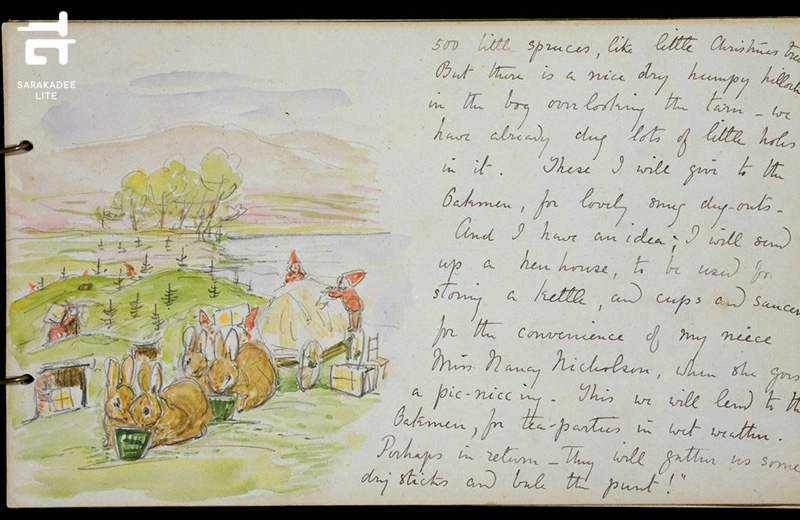 SARAKADEE
LITE
500 little spruces, like little Christmas tree
But there is a nice dry humpy hillock
in the bog overlooking the tarn – we
have already dug lots of little holes
in it. These I will give to the
Oakmen, for lovely snug dug-outs.
And I have an idea; I will send
up a hen house, to be used for
storing a kettle, and cups and saucers
for the convenience of my niece
Miss Nancy Nicholson, when she goes
a pic-niccing. This we will lend to the
Oakmen, for tea-parties in wet weather.
Perhaps in return – they will gather us some
dry sticks and bale the punt!"